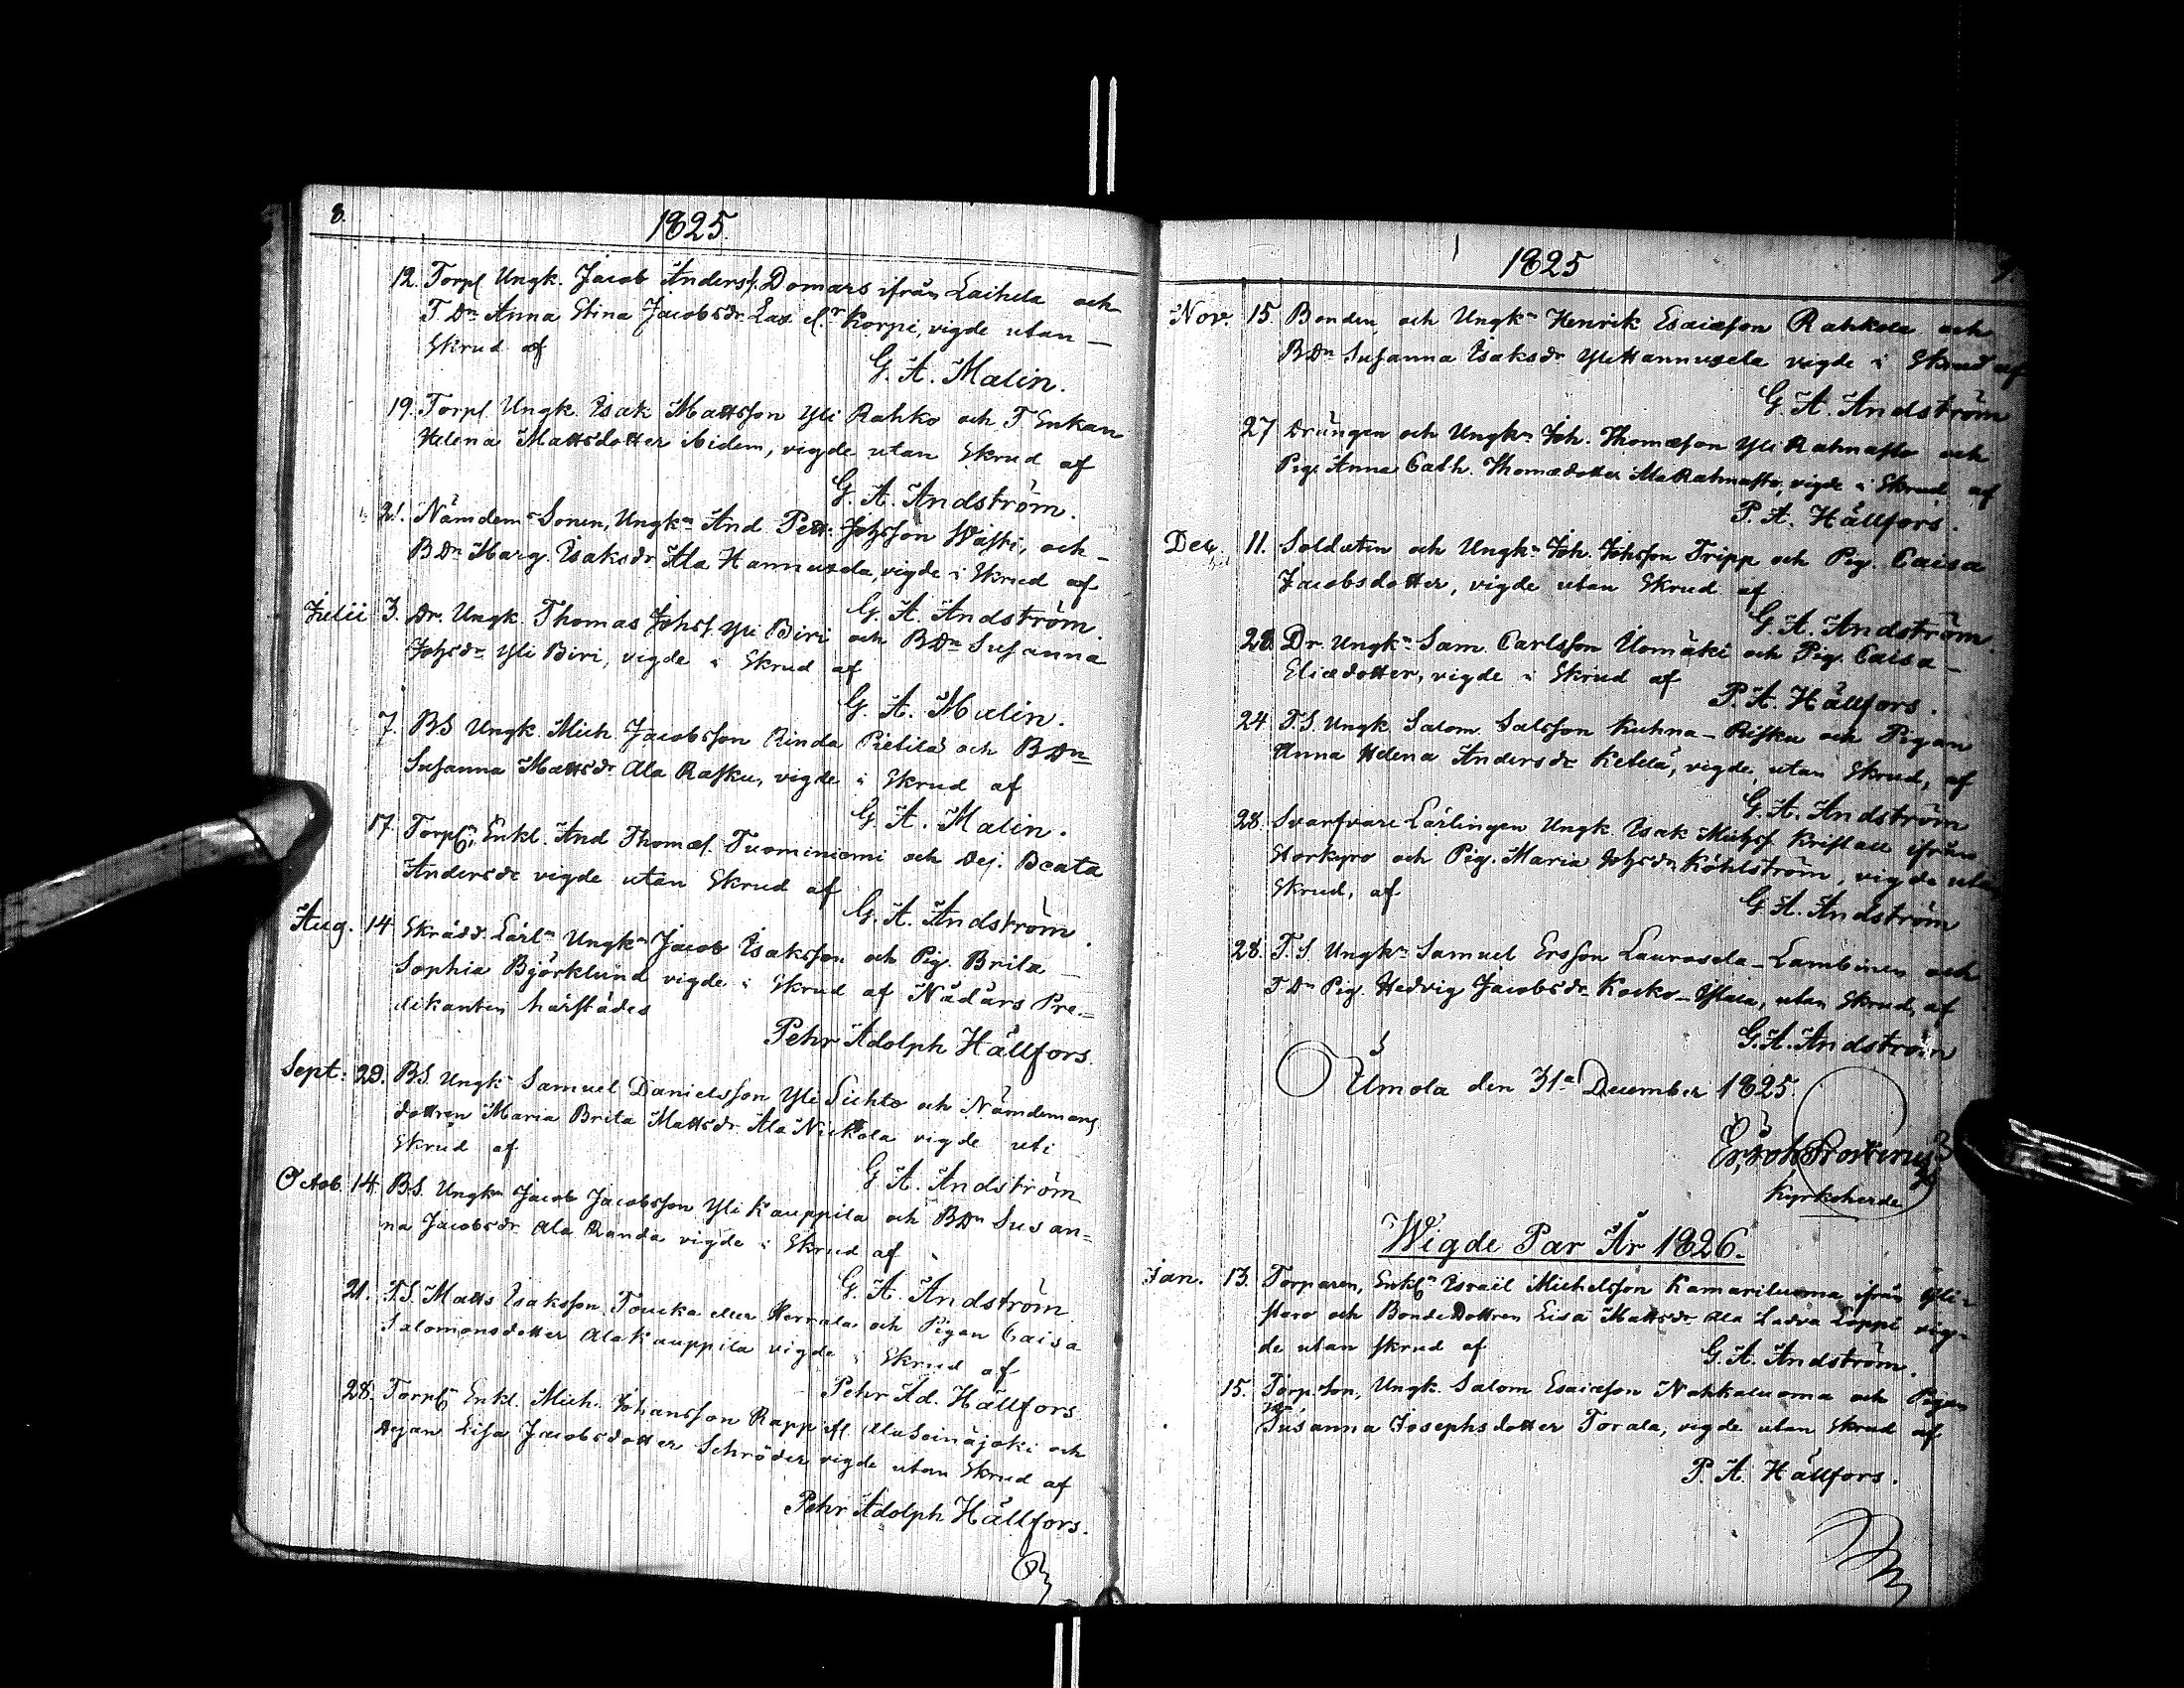 8.
1825.
12. Torpf Ungk. Jacob Andersf. Domars ifrån Laihela och
T Dn Anna Stina Jacobsdr. Las Korpi, vigde utan
Skrud af
G. A. Malin.
19. Torpf. Ungk. Isak Mattsson Yli Rahko och T Enkan
Helena Mattsdotter ibidem, vigde utan Skrud af
G. A. Andström.
21. Nämdem: Sonen, Ungkn And. Pett: Johsson Waski, och
BDn Marg. Isaksdr. Ala Hannuxela, vigde i Skrud af
G. A. Andström.
Julii 3. Dr. Ungk. Thomas Johsf. Yli Biri och BDn Susanna
Johsdr Yli Biri, vigde i Skrud af
G. A. Malin.
7. BS Ungk. Mich. Jacobsson Rinda Pietilä och BDn
Susanna Mattsdr Ala Rasku, vigde i Skrud af
G. A. Malin.
17. Torpn, Enkl. And Thomæs. Tuominiemi och Dej. Beata
Andersdr vigde utan Skrud af
G. A. Andström.
Aug. 14 Skrädd. Lärln Ungkn Jacob Isaksson och Pig. Brita
Sophia Björklund vigde i Skrud af Nådårs Pre=
dikanten härstädes
Pehr Adolph Hällfors.
Sept: 29. BS. Ungkn Samuel Danielsson Yli Sichto och Nämdemans
dottren Maria Brita Mattsdr. Ala Nickola vigde uti
Skrud af
G. A. Andström
Octob. 14. BS. Ungkn Jacob Jacobsson Yli Kauppila och BDn Susan=
na Jacobsdr Ala Randa vigde i Skrud af
G. A. Andström
21. T.S. Matts Isaksson Toucka eller Herrala och Pigan Caisa
Salomonsdotter Ala Kauppila vigde i Skrud af
Pehr Ad. Hällfors
28. Torpn Enkl. Mich. Johansson Rapp Ala Seinäjoki och
Dejan Lisa Jacobsdotter Schröder vigde utan Skrud af
Pehr Adolph Hällfors.
1825
Nov. 15. Bonden och Ungkn Henrik Esaiæson Rahkola och
BDn Susanna Isaksdr Ylihannuxela vigde i Skrud af
G. A. Andström
27 Drängen och Ungkn Joh. Thomæson Yli Rahnasto och
Pig. Anna Cath. Thomædotter Ala Rahnasto, vigde i Skrud af
P. A. Hällfors.
Dec. 11. Soldaten och Ungkn Joh. Johsson Tripp och Pig. Caisa
Jacobsdotter, vigde utan Skrud af
G. A. Andström.
28. Dr. Ungkn Sam. Carlsson Uomäki och Pig. Caisa
Eliædotter, vigde i Skrud af
P. A. Hällfors.
24. T.S. Ungk. Salom. Salsson Kuhna-Risku och Pigan
Anna Helena Andersdr Ketelä, vigde utan Skrud, af
G. A. Andström
28. Svarfvare Lärlingen Ungk. Isak Michsf. Kristall ifrån
Storkyro och Pig. Maria Johsdr Köhlström, vigde utan
Skrud, af
G. A. Andström
28. T.S Ungkn Samuel Ersson Laurosela-Lambinen och
T Dn Pig. Hedvig Jacobsdr Kocko-Yliala, utan Skrud, af
G. A. Andström
Ilmola den 31a December 1825.
Kyrkoherde
Wigde Par År 1826.
Jan. 13. Torparen, Enkln Israil Michelsson Kamariluoma ifrån Yli=
staro och BondeDottren Lisa Mattsdr Ala Ladva Loppi vig=
de utan skrud af
G. A. Andström.
15. Torp. Son, Ungk. Salom Esaiæson Nahkaluoma och Pigan
Susanna Josephsdotter Torala, vigde utan Skrud af
P. A. Hällfors.